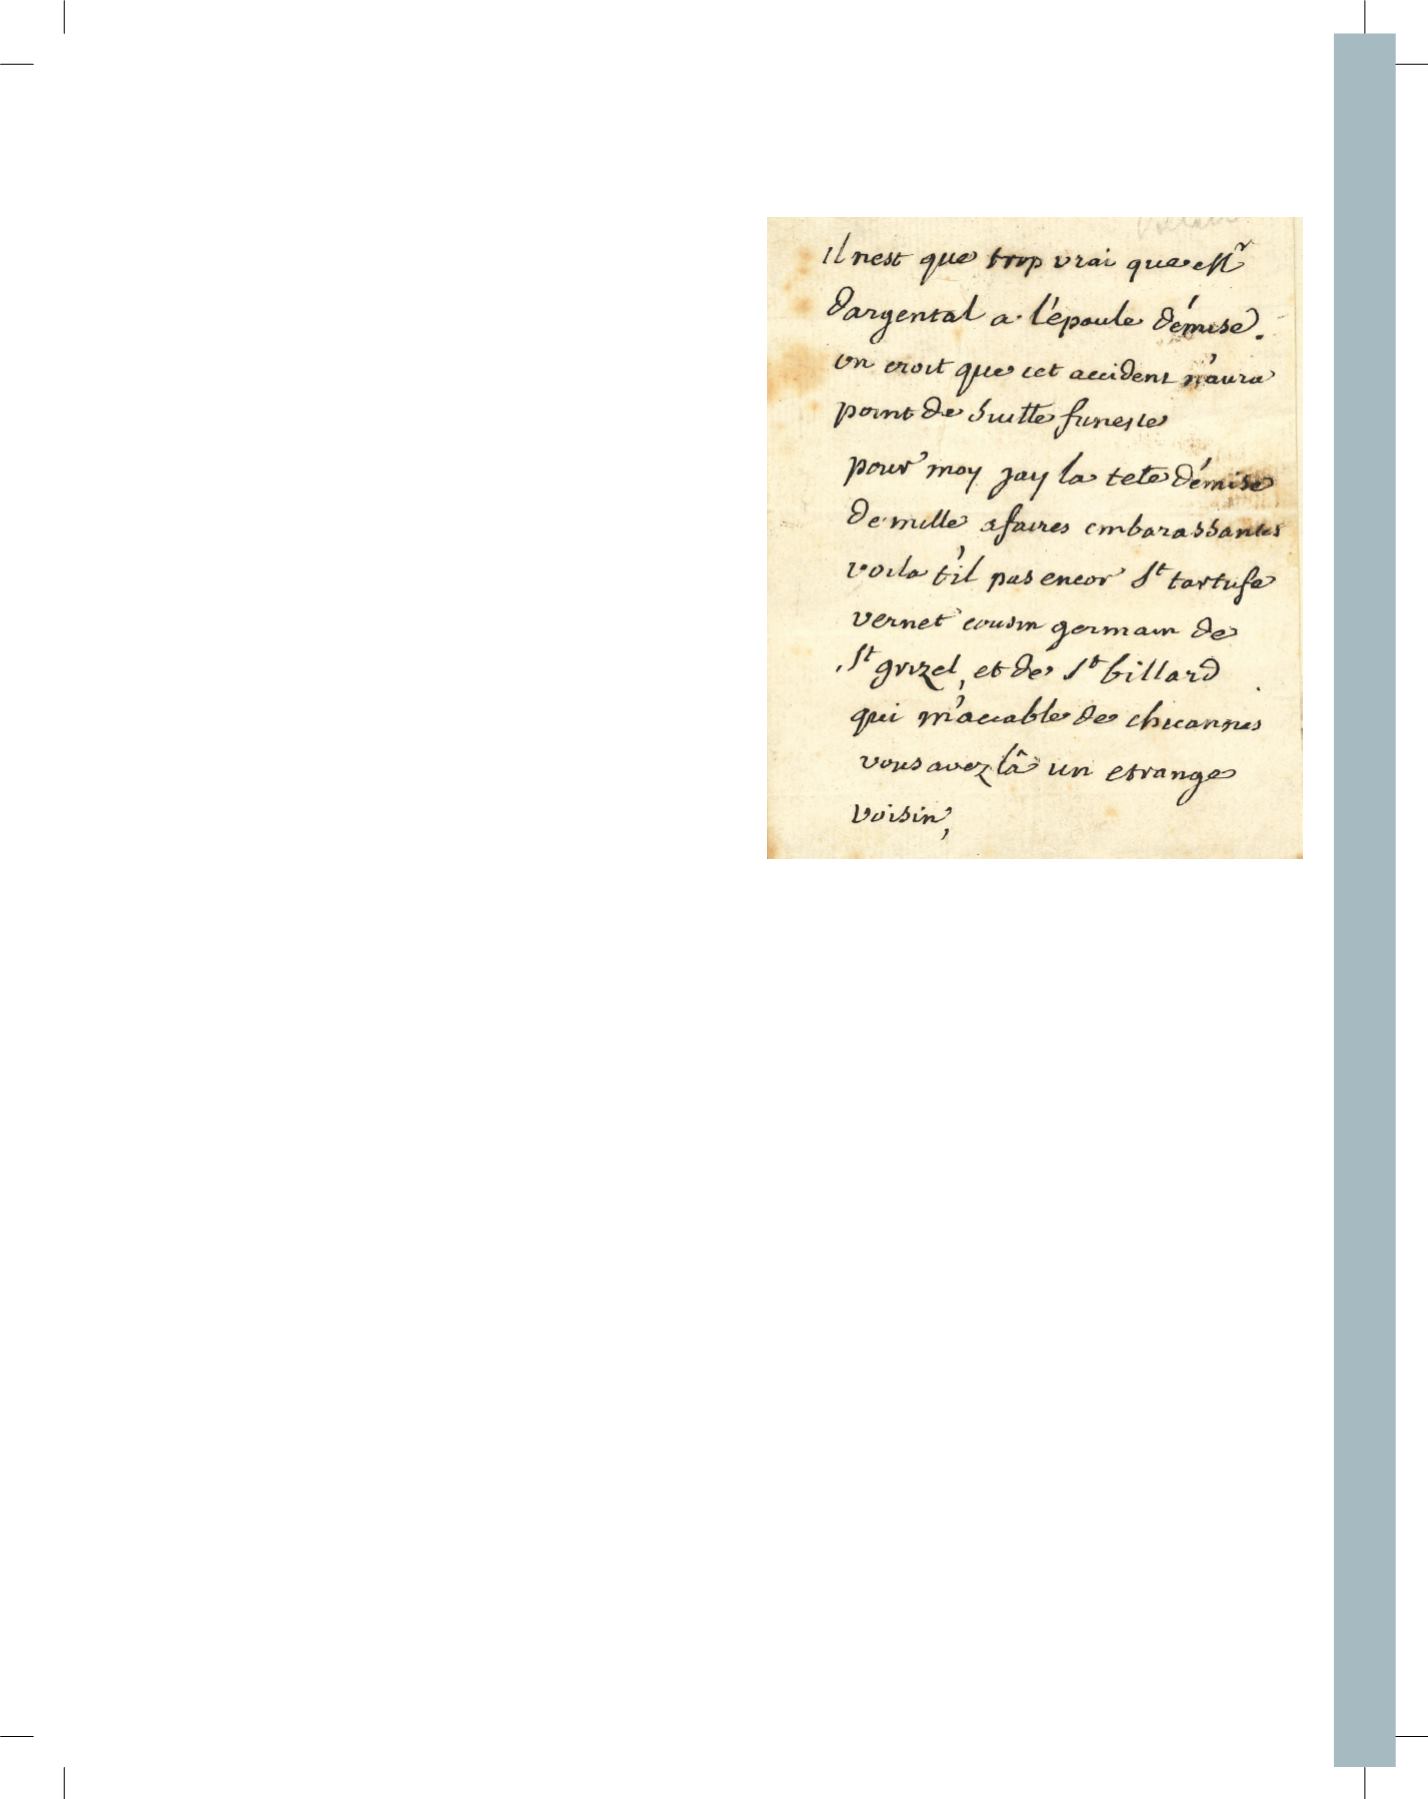 il nest que trop vrai que Mr
dargental a l'épaule démise.
on croit que cet accident n'aura
point de suitte funeste
pour moy jay la tete démise
de mille afaires embarassantes
voila t'il pas encor St tartufe
vernet cousin germain de
St grizel, et de St billard
qui m'accable de chicannes
vous avez lâ un etrange
voisin,